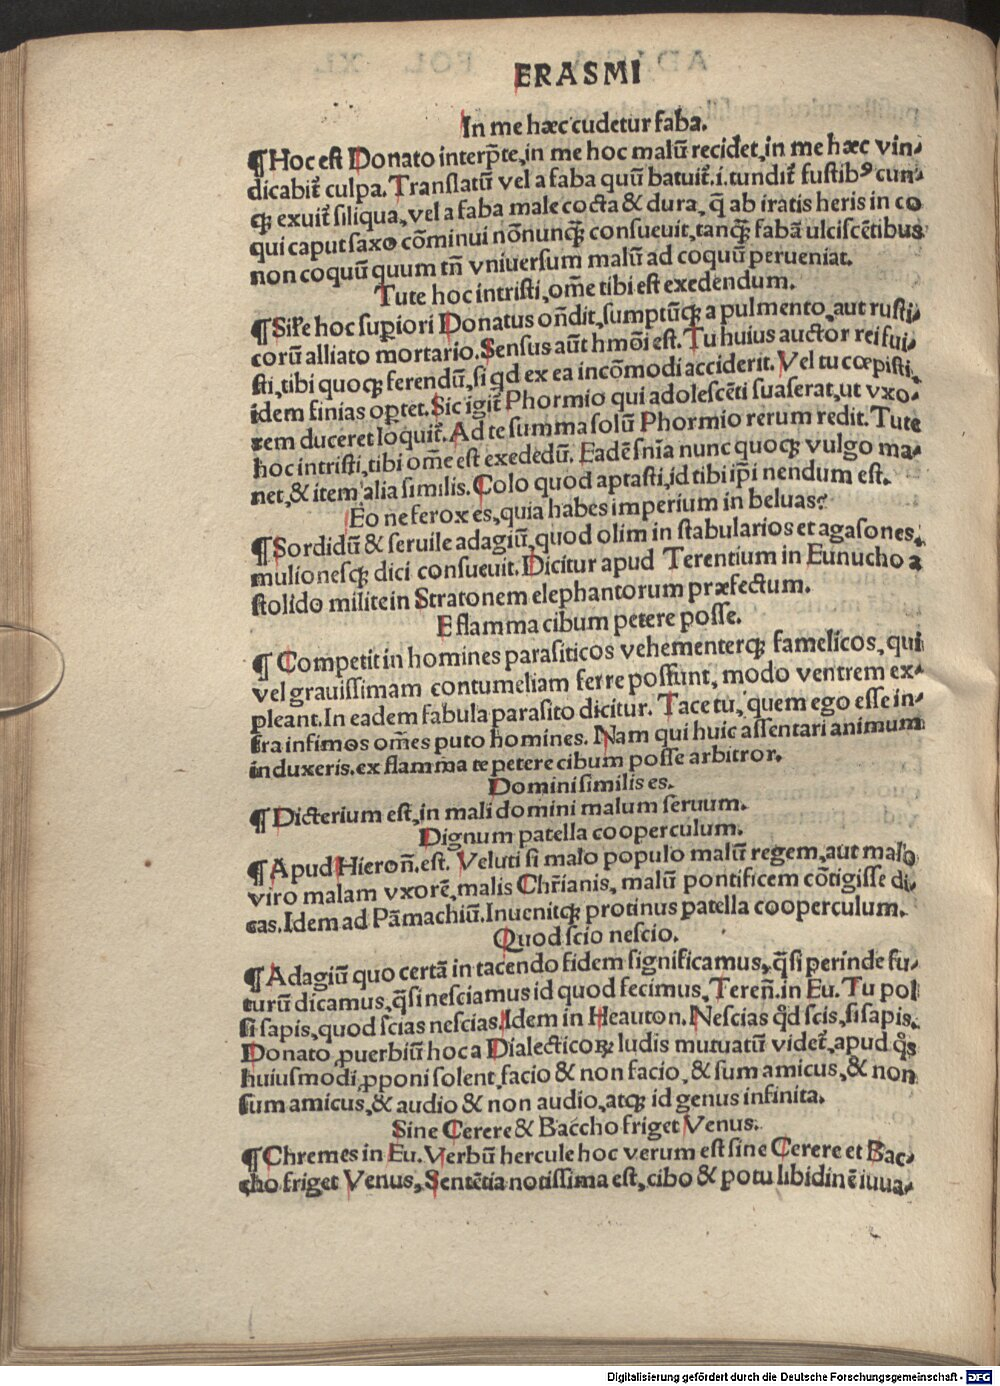 ERASMI
In me hæc cudetur faba.
¶ Hoc est Donato interp̄te, in me hoc malū recidet, in me hæc vin-
dicabit̄ culpa. Translatū vel a faba quū batuit̄.i. tundit̄ fustibꝰ cun-
qꝫ exuit̄ siliqua, vel a faba male cocta & dura, q̄ ab iratis heris in co
qui caput saxo cōminui nōnunqꝫ̄ consueuit, tanqꝫ̄ fabā ulciscētibus
non coquū quum tn̄ vniuersum malū ad coquū perueniat.
Tute hoc intristi, om̄e tibi est exedendum.
¶ Sil̄e hoc supiori Donatus on̄dit, sumptūqꝫ a pulmento, aut rusti-
corū alliato mortario. Sensus aūt hmōi est. Tu huius auctor rei fui-
sti, tibi quoqꝫ ferendū, si qd ex ea incōmodi acciderit. Vel tu cœpisti,
idem finias oꝑtet. Sic igit̄ Phormio qui adolescēti suaserat, ut vxo-
rem duceret loquit̄. Ad te summa solū Phormio rerum redit. Tute
hoc intristi, tibi om̄e est exedēdū. Eadē sn̄ia nunc quoqꝫ vulgo ma-
net, & item alia similis. Colo quod aptasti, id tibi ip̄i nendum est.
Eo ne ferox es, quia habes imperium in beluas?
¶ Sordidū & seruile adagiū, quod olim in stabularios et agasones,
mulionesqꝫ dici consueuit. Dicitur apud Terentium in Eunucho a
stolido milite in Stratonem elephantorum præfectum.
E flamma cibum petere posse.
¶ Competit in homines parasiticos vehementerqꝫ famelicos, qui
vel grauissimam contumeliam ferre possunt, modo ventrem ex-
pleant. In eadem fabula parasito dicitur. Tace tu, quem ego esse in-
fra infimos om̄es puto homines. Nam qui huic assentari animum
induxeris, ex flamma te petere cibum posse arbitror.
Domini similis es.
¶ Dicterium est, in mali domini malum seruum.
Dignum patella cooperculum.
¶ Apud Hieron̄. est. Veluti si malo populo malū regem, aut malo
viro malam vxorē, malis Chr̄ianis, malū pontificem cōtigisse di-
cas. Idem ad Pāmachiū. Inuenitqꝫ protinus patella cooperculum.
Quod scio nescio.
¶ Adagiū quo certā in tacendo fidem significamus, q̄si perinde fu-
turū dicamus, q̄si nesciamus id quod fecimus, Teren̄. in Eu. Tu pol
si sapis, quod scias nescias. Idem in Heauton. Nescias qd scis, si sapis.
Donato ꝓuerbiū hoc a Dialecticoꝝ ludis mutuatū videt̄, apud qs
huiusmodi ꝓponi solent, facio & non facio, & sum amicus, & non
sum amicus, & audio & non audio, atqꝫ id genus infinita.
Sine Cerere & Baccho friget Venus.
¶ Chremes in Eu. Verbū hercule hoc verum est sine Cerere et Bac-
cho friget Venus, Sentētia notissima est, cibo & potu libidinē iuua-
Digitalisierung gefördert durch die Deutsche Forschungsgemeinschaft - DFG